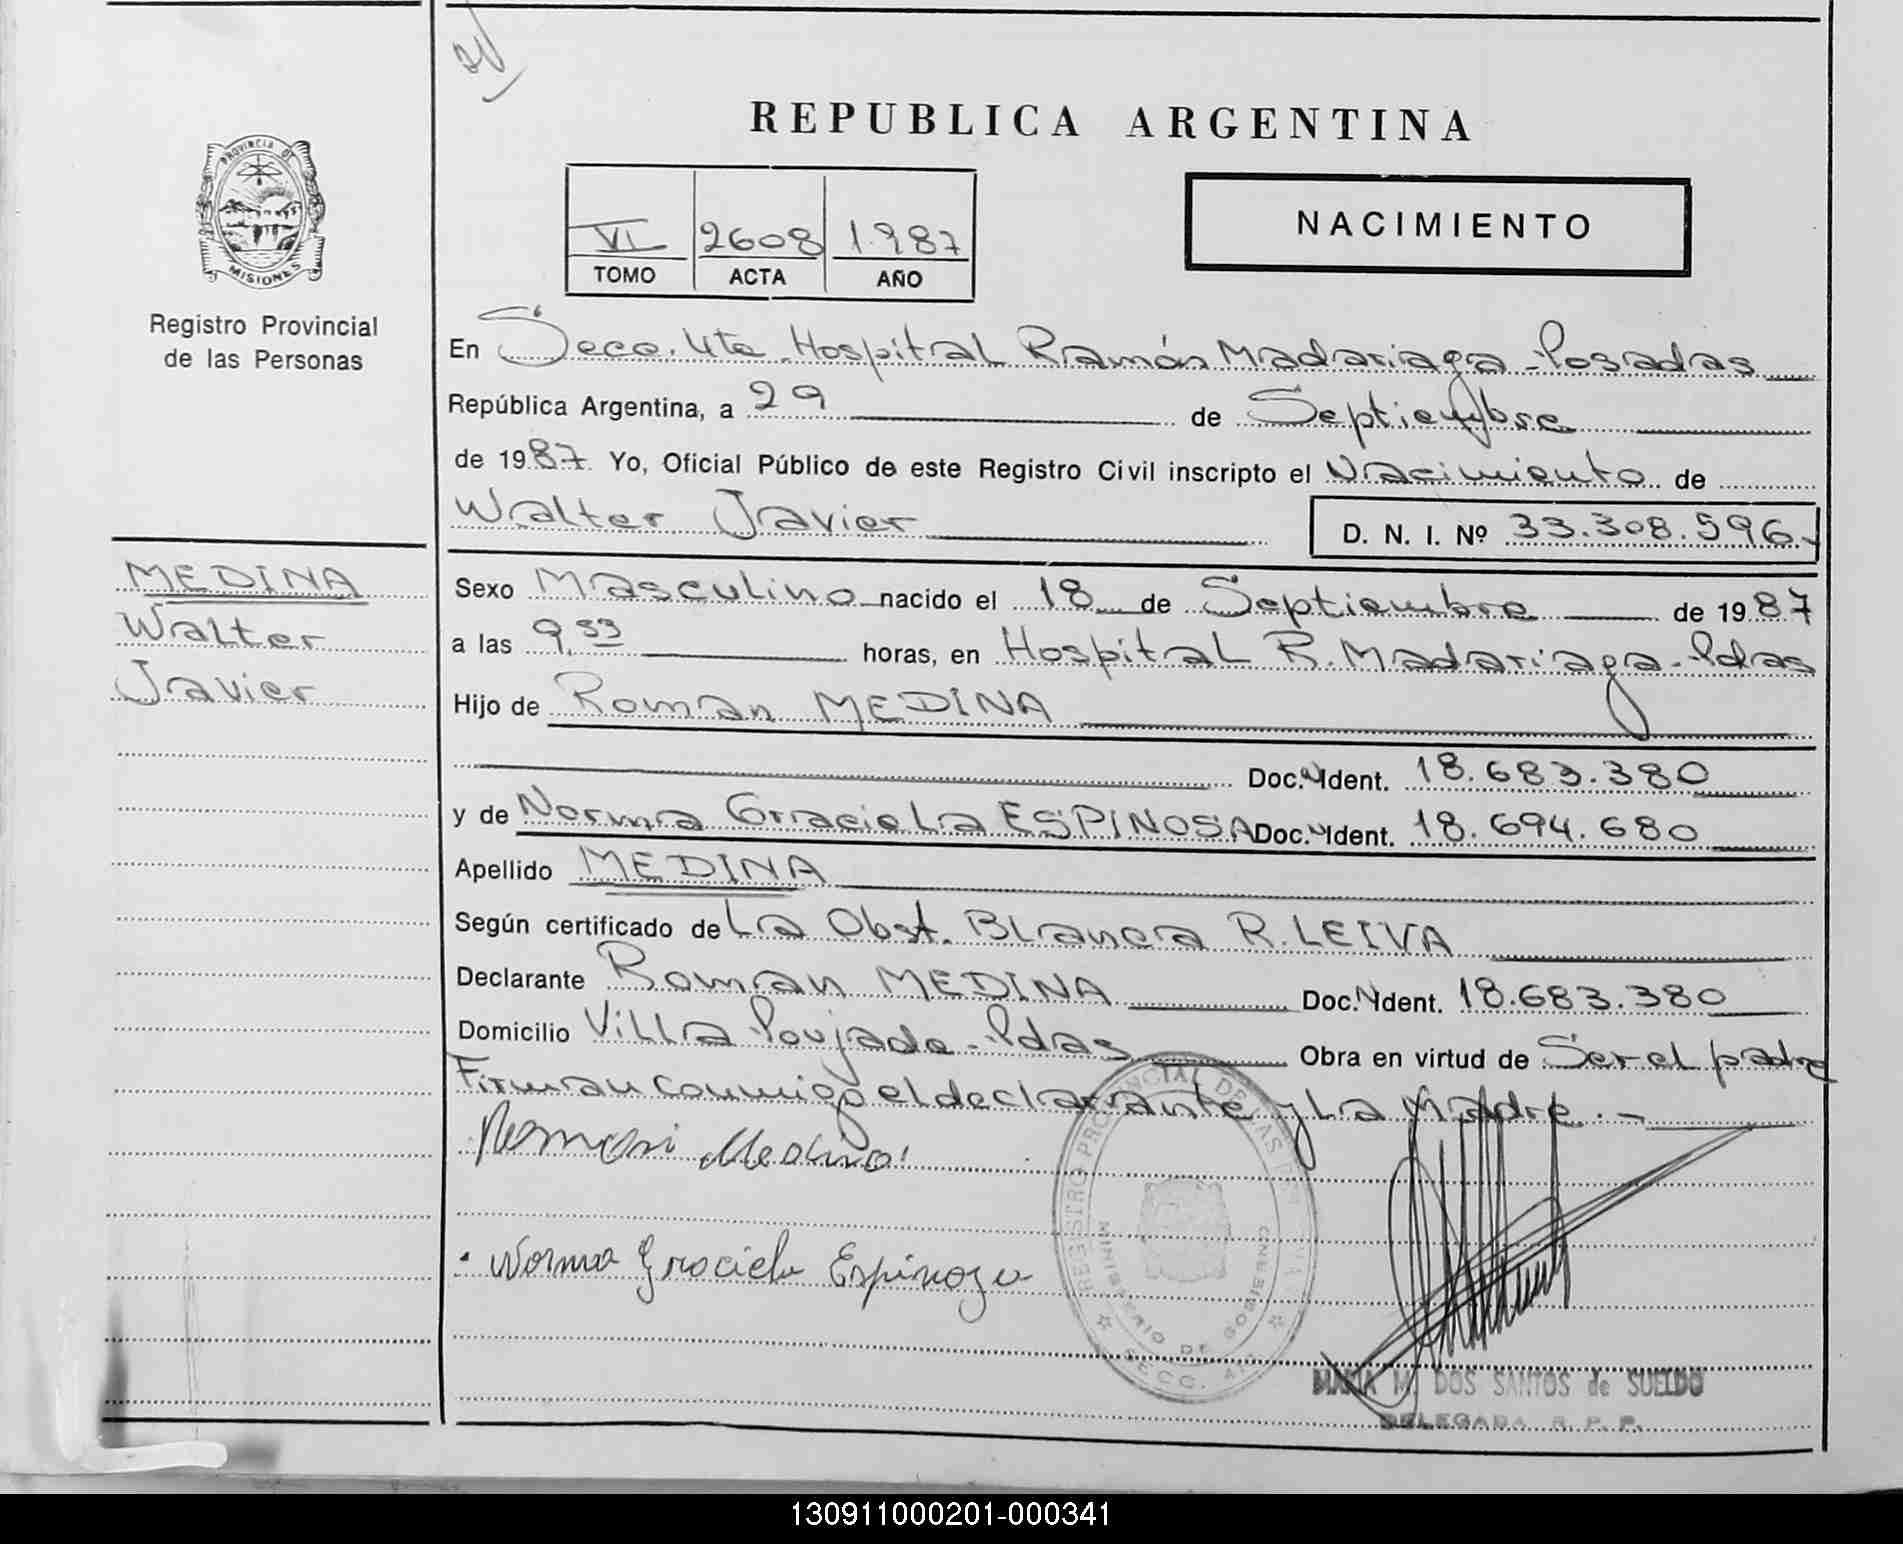 REPUBLICA ARGENTINA
PROVINCIA DE
MISIONES
Registro Provincial
de las Personas
VI 2608 1.987
TOMO ACTA AÑO
NACIMIENTO
En Secc. 4ta Hospital Ramón Madariaga - Posadas
República Argentina, a 29 de Septiembre
de 1987. Yo, Oficial Público de este Registro Civil inscripto el Nacimiento de
Walter Javier D. N. I. Nº 33.308.596.-
MEDINA
Walter
Javier
Sexo Masculino nacido el 18 de Septiembre de 1987
a las 9,33 horas, en Hospital R. Madariaga - Pdas
Hijo de Roman MEDINA
Doc. Ident. 18.683.380
y de Norma Graciela ESPINOSA Doc. Ident. 18.694.680
Apellido MEDINA
Según certificado de La Obst. Blanca R. LEIVA
Declarante Roman MEDINA Doc. Ident. 18.683.380
Domicilio Villa Poujade - Pdas Obra en virtud de Ser el padre
Firman conmigo el declarante y La Madre. -
Roman Medina
Norma Graciela Espinoza
REGISTRO PROVINCIAL DE LAS
MINISTERIO DE GOBIERNO
SECC. 4ta
MARIA M. DOS SANTOS de SUELDO
DELEGADA R. P. P.
130911000201-000341